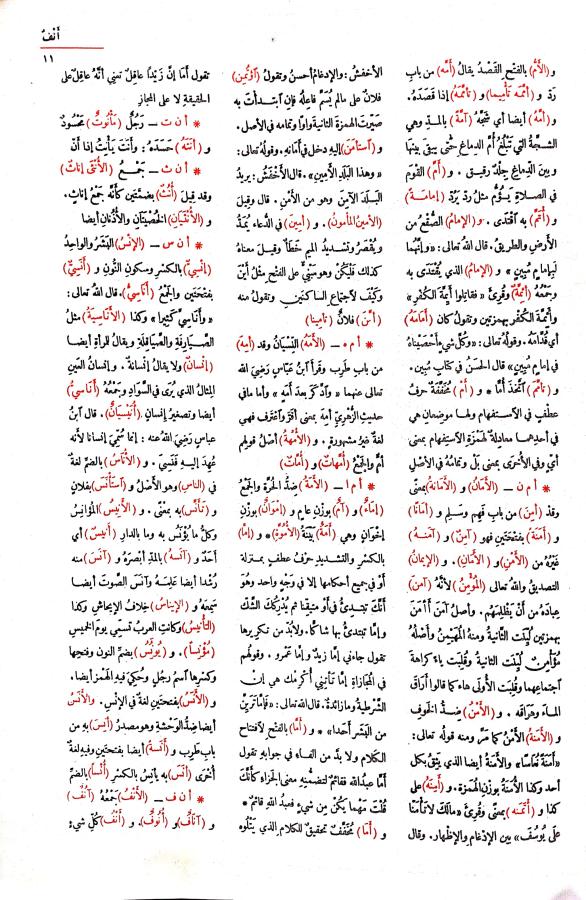 أنف
١١
و (الأَمُّ) بالفتح القَصْدُ يقالُ (أَمَّه) من باب
ردّ و (أَمَّمَه تَأْمِيما) و (تأَمَّمَه) إذا قصَدَهُ.
و (أَمَّهُ) أيضا أي شَجَّهُ (آمَّةً) بالمدّ وهي
الشجَّةُ التي تَبلُغُ أُمَّ الدماغ حتَّى يبقى بينها
وبين الدِّماغِ جلْدٌ رقيق. و (أَمَّ) القَوْمَ
في الصلاةِ يَؤُمُّ مثلُ ردّ يَرُدّ (إمامةً)
و (أْتَمَّ) به اقْتَدَى. و (الإمامُ) الصُّقْعُ من
الأرضِ والطريقُ. قال اللهُ تعالى: «وإنَّهُما
لَبِإمامٍ مُبِينٍ» و (الإمامُ) الذي يُقْتَدَى به
وجمعُهُ (أئِمَّةٌ) وقُرِئَ «فقاتلوا أَيِمَّةَ الكُفْرِ»
وأَئِمَّةَ الكُفْر بهمزتين وتقولُ كان (أَمَامَهُ)
أي قُدَّامَهُ. وقولُهُ تعالى: «وكلَّ شيءٍ أَحْصَيناهُ
في إمامٍ مُبينٍ» قال الحسَنُ في كتابٍ مُبين.
و (تأَمَّم) اتَّخَذَ أُمَّا * و (أَمْ) مُخفَّفةٌ حرفُ
عطفٍ في الاستفهامِ ولها موضعان هي
في أحدِهما معادِلةٌ لهمزةِ الاستفهامِ بمعنى
أيّ وفي الأخرى بمعنى بل وتمامُه في الأصل
* أ م ن ـ (الأَمَانُ) و (الأَمَانةُ) بمعنى
وقد (أَمِنَ) من باب فَهِم وسَلِم و (أَمَانًا)
و (أَمَنَةً) بفتحتين فهو (آمِنٌ) و (آمَنَهُ)
غيرُه من (الأَمْنِ) و (الأَمَانِ). و (الإيمانُ)
التصديقُ واللهُ تعالى (المُؤْمِنُ) لأنَّهُ (آمَنَ)
عبادَه من أن يَظْلِمَهُم. وأصلُ آمَنَ أَأْمَنَ
بهمزتين لُيِّنَت الثانيةُ ومنهُ المُهَيْمِنُ وأصلُهُ
مُؤَأْمِن لُيِّنَت الثانيةُ وقُلِبَت ياءً كراهةَ
اجتماعِهما وقُلِبَت الأُولى هاءً كما قالوا أَراقَ
الماءَ وهَرَاقه. و (الأَمْنُ) ضِدُّ الخوفِ
و (الأَمَنَةُ) الأَمْنُ كما مَرَّ ومنه قولُه تعالى:
«أَمَنَةً نُعاسًا» والأَمَنةُ أيضا الذي يَثِقُ بكلِّ
أحدٍ وكذا الأُمَنَةُ بوزنِ الهُمَزةِ. و (أَمِنَهُ) على
كذا و (أْتَمَنه) بمعنًى وقُرِئَ «مالَكَ لا تَأْمَنَّا
على يُوسُفَ» بين الإدغامِ والإظهار. وقال
الأخفشُ: والإدغامُ أحسنُ وتقولُ (اؤْتُمِن)
فلانٌ على مالم يُسَمَّ فاعلُهُ فإن ابتدأتَ به
صيَّرتَ الهمزةَ الثانيةَ واوًا وتمامُه في الأصل.
و (استأمَن) إليه دخل في أمانِهِ. وقولُه تعالى:
«وهذا البَلَدِ الأَمِينِ». قال الأخْفَشُ: يريدُ
البَلدَ الآمِنَ وهو من الأَمْن. قال وقيل
(الأمينُ المأمونُ). و (أمِينَ) في الدُّعاء يُمدُّ
ويُقصَرُ وتشديدُ الميمِ خطأٌ وقيل معناهُ
كذلك فليكُنْ وهو مبنيٌّ على الفتحِ مثلُ أَيْنَ
وكَيْفَ لاجتماعِ الساكنينِ وتقولُ منهُ
(أمَّنَ) فلانٌ (تأمِينا)
* أ م ه ـ (الأَمَهُ) النِّسْيانُ وقد (أَمِهَ)
من باب طَرِب وقرأ ابنُ عبَّاسٍ رَضِيَ اللهُ
تعالى عنهما «وادَّكَرَ بعدَ أَمَهٍ» وأما ما في
حديثِ الزُّهْرِيِّ أَمِهَ بمعنى أقَرَّ واعترف فهي
لغةٌ غيرُ مشهورةٍ. و (الأُمَّهَةُ) أصلُ قولهم
أُمّ والجمعُ (أُمَّهاتٌ) و (أُمَّاتٌ)
* أ م ا ـ (الأَمَةُ) ضِدُّ الحُرَّةِ والجمْعُ
(إماءٌ) و (آمٍ) بوزْنِ عامٍ و (إمْوانٌ) بوزنِ
إخْوانٍ وهي (أَمَةٌ) بيِّنةُ (الأُمُوَّةِ) * و (إمّا)
بالكسْرِ والتشديدِ حرْفُ عطفٍ بمنزلة
أَوْ في جميع أحكامها إلا في وَجْهٍ واحد وهو
أنَّك تبتدئُ في أَوْ متيقِّنا ثم يُدْرِكُكَ الشكُّ
وإمّا تبتدئُ بها شاكًّا. ولا بدَّ من تكريرها
تقول جاءني إمّا زيدٌ وإمّا عمرٌو. وقولهم
في المجازاةِ إمّا تأتِنِي أُكْرِمْكَ هي إن
الشرطيةُ وما زائدةٌ. قال اللهُ تعالى: «فإمَّا تَرَيِنَّ
من البَشَرِ أحدا» * و (أَمَّا) بالفتح لافتتاح
الكلامِ ولا بدَّ من الفاء في جوابِهِ تقول
أمّا عبدُ اللهِ فقائمٌ لتضمُّنِه معنى الجزاء كأنَّك
قُلْتَ مهما يكُنْ من شيءٍ فعبدُ اللهِ قائمٌ *
و (أَمَا) مُخفَّفٌ تحقيقٌ للكلامِ الذي يتْلُوه
تقول أمَا إنَّ زيدًا عاقلٌ تعني أنَّهُ عاقلٌ على
الحقيقةِ لا على المجازِ
* أ ن ت ـ رجُلٌ (مأنُوتٌ) محسُودٌ
و (أَنَتَهُ) حَسَدَهُ: وأنتَ يأنِتُ إذا أنَّ
* أ ن ث ـ جَمْعُ (الأُنْثى إناثٌ)
وقد قيل (أُنُثٌ) بضمَّتينِ كأنَّه جَمْعُ إناثٍ.
و (الأُنْثَيَانِ) الخُصْيَتانِ والأُذُنانِ أيضا
* أ ن س ـ (الإنْسُ) البَشَرُ والواحدُ
(إنْسِيٌّ) بالكسْرِ وسكونِ النُّونِ و (أَنَسِيٌّ)
بفتحتينِ والجمْعُ (أَناسِيُّ). قال اللهُ تعالى:
«وأَناسِيَّ كثيرا» وكذا (الأناسِيَةُ) مثلُ
الصيارفةِ والصياقلةِ ويقالُ للمرأةِ أيضا
(إنسانٌ) ولا يقالُ إنسانةٌ. وإنسانُ العين
المِثالُ الذي يُرَى في السَّوادِ وجمعُهُ (أَناسِيُّ)
أيضا وتصغيرُ إنسانٍ (أُنَيْسِيانٌ). قال ابنُ
عباسٍ رَضِيَ اللهُ عنه: إنما سُمِّيَ إنسانا لأنه
عُهِدَ إليه فنَسِيَ. و (الأُناسُ) بالضمِّ لغةٌ
في (الناسِ) وهو الأصْلُ و (استأنَسَ) بفلانٍ
و (تأنَّسَ) به بمعنًى. و (الأنيسُ) المُؤَانِسُ
وكلُّ ما يُؤْنَسُ به وما بالدار (أنيسٌ) أي
أحدٌ و (آنَسَهُ) بالمدّ أبصَرَهُ و (آنَسَ) منه
رُشْدا أيضا علِمَهُ وآنَسَ الصَّوتَ أيضا
سَمِعَهُ و (الإيناسُ) خلافُ الإيحاشِ وكذا
(التأنِيسُ) وكانتِ العربُ تسمِّي يومَ الخميسِ
(مُؤْنِسًا). و (يُونُسُ) بضمِّ النونِ وفتحها
وكسْرِها اسمُ رجُلٍ وحُكِيَ فيه الهمزُ أيضا.
و (الأَنَسُ) بفتحتينِ لغةٌ في الإنْسِ. والأنَسُ
أيضا ضِدُّ الوَحْشةِ وهو مصدرُ (أَنِسَ) به من
بابِ طَرِب و (أَنَسةً) أيضا بفتحتينِ وفيه لغةٌ
أُخْرَى (أَنَسَ) به يأنِسُ بالكسْرِ (أُنْسا) بالضمّ
* أ ن ف ـ (الأَنْفُ) جَمْعُهُ (آنُفٌ)
و (آنافٌ) و (أُنُوفٌ). و (أَنْفُ) كلِّ شيءٍ